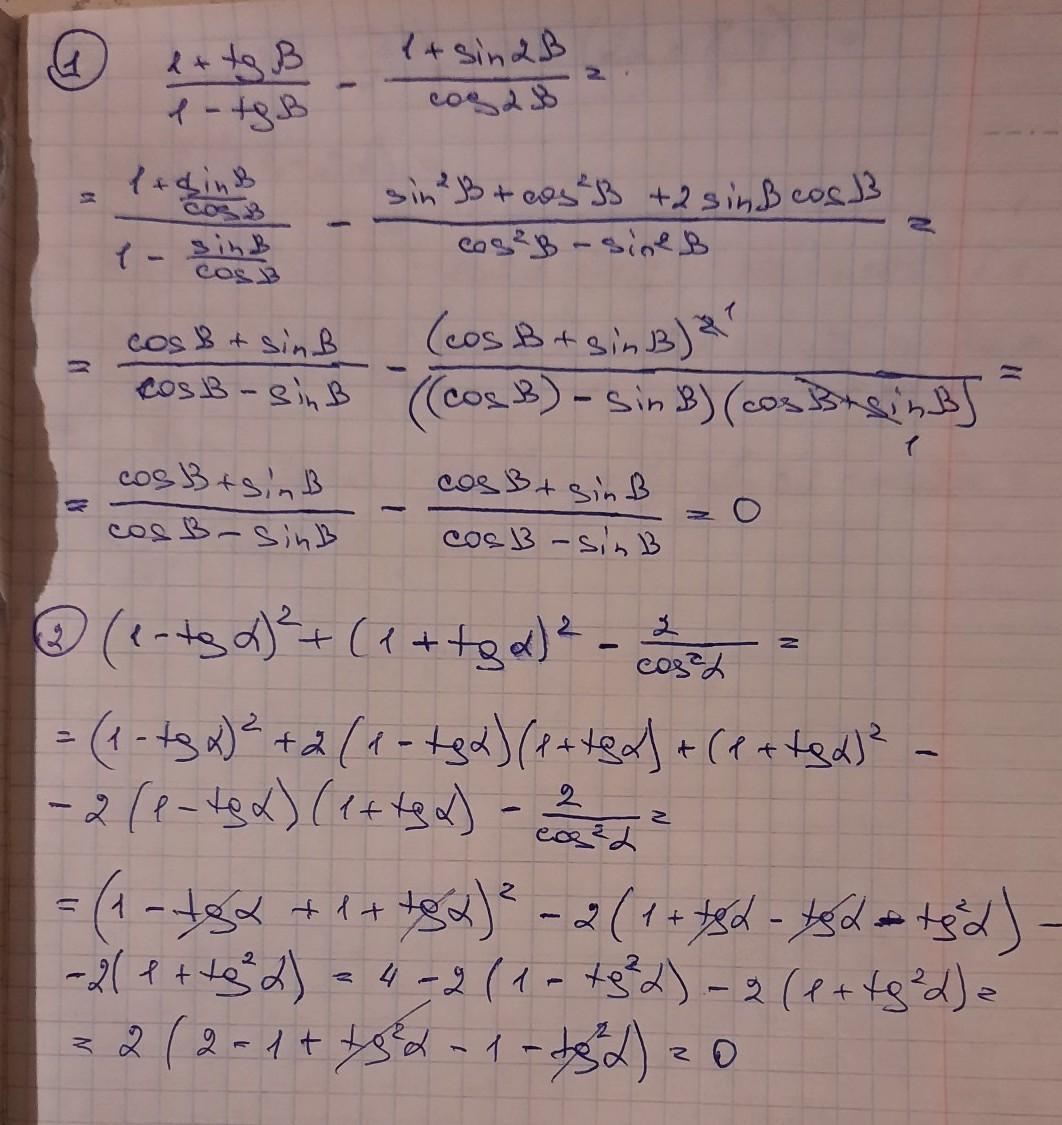 ① (1 + tg B)/(1 - tg B) - (1 + sin 2B)/(cos 2B) =
= (1 + sin B/cos B)/(1 - sin B/cos B) - (sin²B + cos²B + 2 sin B cos B)/(cos²B - sin²B) =
= (cos B + sin B)/(cos B - sin B) - (cos B + sin B)²¹/((cos B) - sin B)(cos B + sin B)₁ =
= (cos B + sin B)/(cos B - sin B) - (cos B + sin B)/(cos B - sin B) = 0
② (1 - tg α)² + (1 + tg α)² - 2/cos²α =
= (1 - tg α)² + 2(1 - tg α)(1 + tg α) + (1 + tg α)² -
- 2(1 - tg α)(1 + tg α) - 2/cos²α =
= (1 - tg α + 1 + tg α)² - 2(1 + tg α - tg α - tg²α) -
-2(1 + tg²α) = 4 - 2(1 - tg²α) - 2(1 + tg²α) =
= 2(2 - 1 + tg²α - 1 - tg²α) = 0